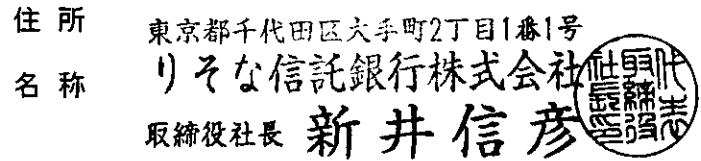 住所 東京都千代田区大手町2丁目1番1号
名称 りそな信託銀行株式会社
取締役社長 新井信彦
代表
取締役
社長印